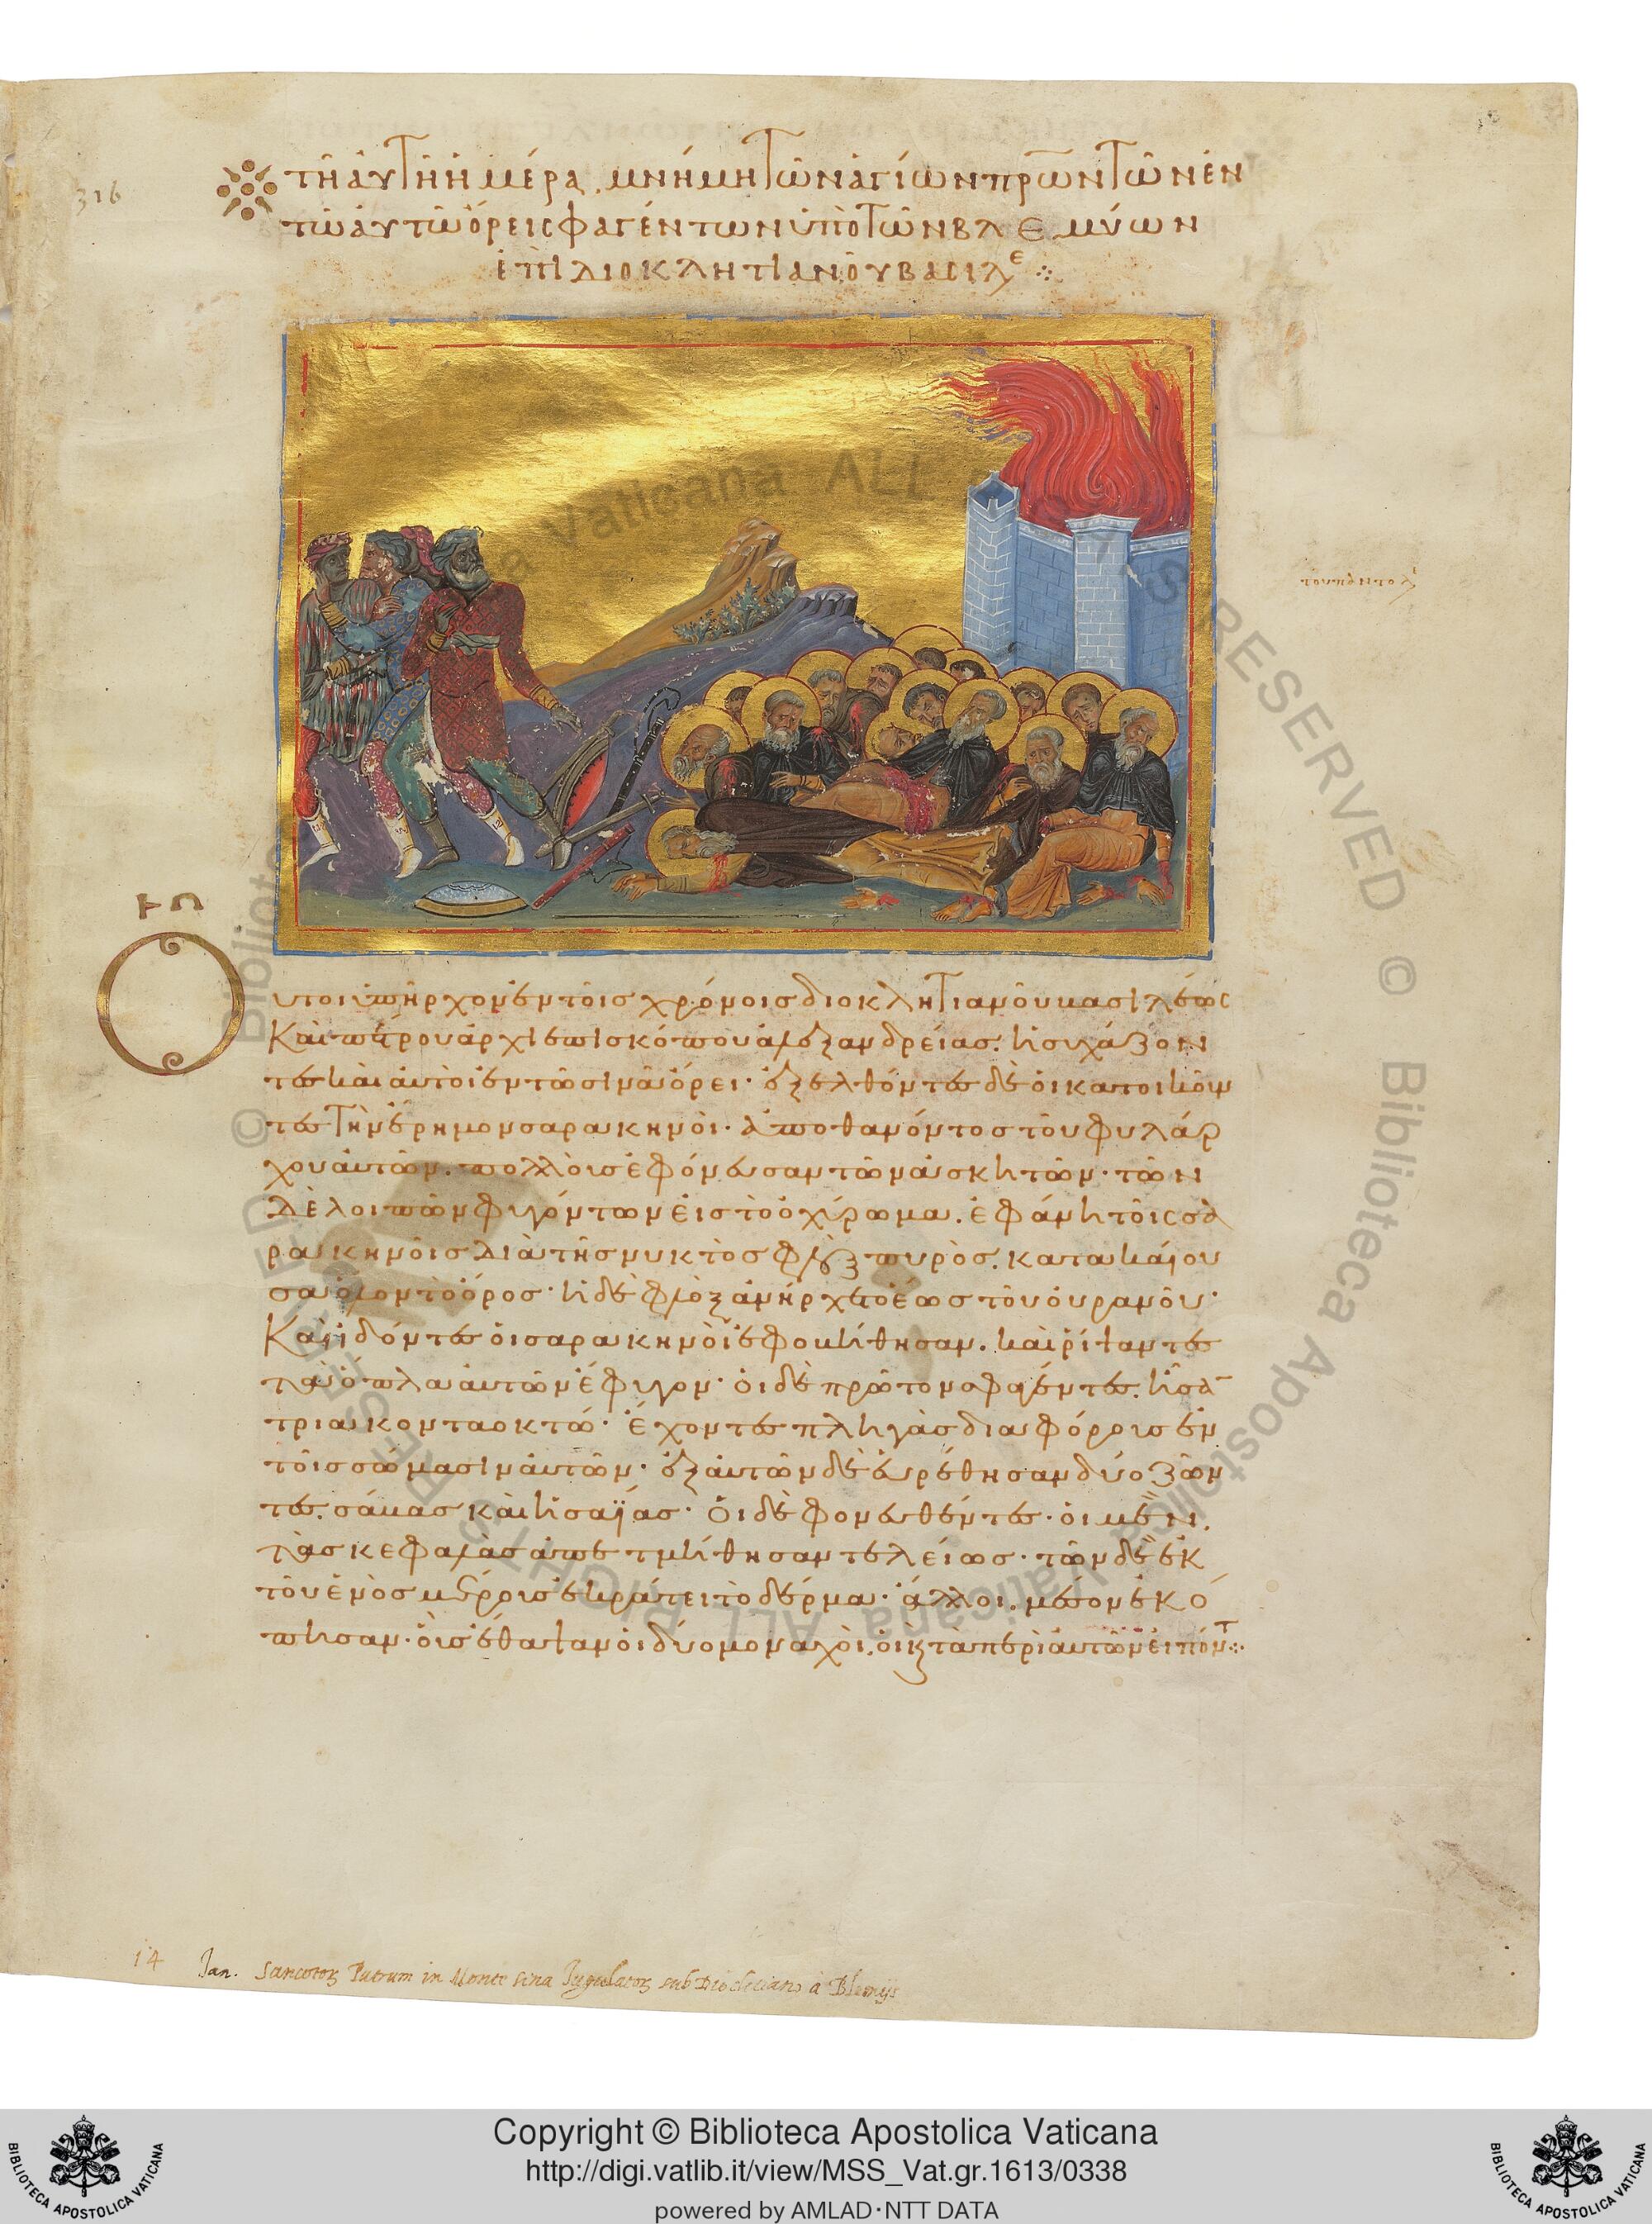 316
τῆ αὐτῆ ἡμέρα, μνήμη τῶν ἁγίων πρων τῶν ἐν
τῶ αὐτῶ ὄρει σφαγέντων ὑπὸ τῶν βλεμύων
ἐπὶ διοκλητιανοῦ βασιλε
Οὗτοι ὑπῆρχον ἐν τοῖς χρόνοις διοκλητιανοῦ βασιλέως
καὶ πέτρου ἀρχιεπισκόπου ἀλεξανδρείας. ἡσυχάζον
τες καὶ αὐτοὶ ἐν τῶ σινᾶ ὄρει· ἐξελθόντες δὲ οἱ κατοικοῦν
τες τὴν ἔρημον σαρακηνοὶ· ἀποθανόντος τοῦ φυλάρ
χου αὐτῶν. πολλοὺς ἐφόνευσαν τῶν ἀσκητῶν· τῶν
δὲ λοιπῶν φυγόντων εἰς τὸ ὀχύρωμα. ἐφάνη τοῖς σα
ρακηνοῖς διὰ τῆς νυκτὸς φλὸξ πυρὸς. κατακαίου
σα ὅλον τὸ ὄρος· ἡ δὲ φλὸξ ἀνήρχετο ἕως τοῦ οὐρανοῦ·
καὶ ἰδόντες οἱ σαρακηνοὶ ἐφοβήθησαν. καὶ ῥίψαντες
τὰ ὅπλα αὐτῶν ἔφυγον· οἱ δὲ πρῶτον σφαγέντες. ἦσαν
τριακονταοκτώ· ἔχοντες πληγὰς διαφόρους ἐν
τοῖς σώμασιν αὐτῶν· ἐξ αὐτῶν δὲ εὑρέθησαν δύο ζῶν
τες. σάβας καὶ ἡσαΐας· οἱ δὲ φονευθέντες· οἱ μὲν.
τὰς κεφαλὰς ἀπετμήθησαν τελείως· τῶν δὲ ἐκ
τοῦ ἑνὸς μέρους ἐκράτει τὸ δέρμα· ἄλλοι. μέσον ἐκό
πησαν· οὓς ἔθαψαν οἱ δύο μοναχοὶ. οἱ κ τὰ περὶ αὐτῶν εἰπόντ
14 Jan. Sanctor Patrum in Monte Sina Jugulator sub Diocletiano a Blemijs
© Biblioteca Apostolica Vaticana ALL RIGHTS RESERVED
Copyright © Biblioteca Apostolica Vaticana
http://digi.vatlib.it/view/MSS_Vat.gr.1613/0338
powered by AMLAD·NTT DATA
BIBLIOTECA APOSTOLICA VATICANA
BIBLIOTECA APOSTOLICA VATICANA